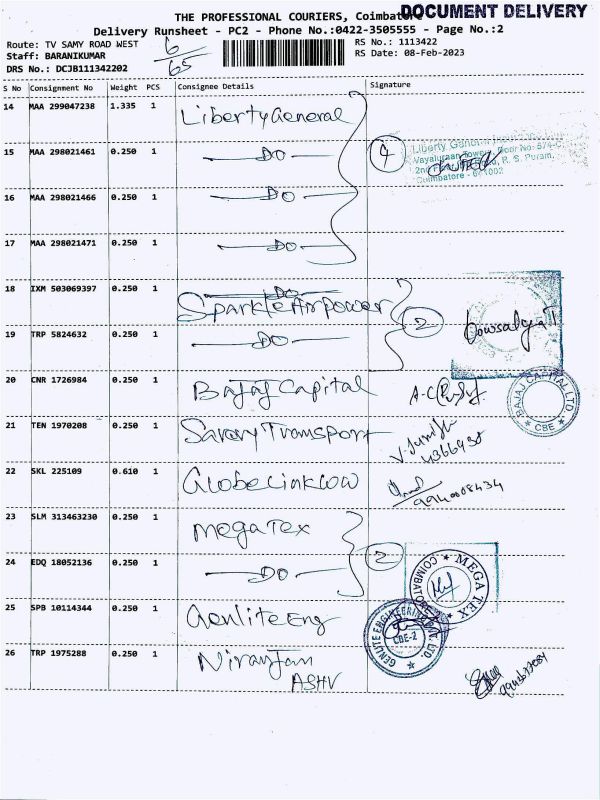 THE PROFESSIONAL COURIERS, Coimbatore
DOCUMENT DELIVERY
Delivery Runsheet - PC2 - Phone No.:0422-3505555 - Page No.:2
Route: TV SAMY ROAD WEST
6/65
RS No.: 1113422
Staff: BARANIKUMAR
RS Date: 08-Feb-2023
DRS No.: DCJB111342202
S No Consignment No Weight PCS Consignee Details Signature
14 MAA 299047238 1.335 1 Liberty General
15 MAA 298021461 0.250 1 DO 4
Liberty General
Vayaluraan Towers, Door No: 574-C
R. S. Puram,
Coimbatore - 641002
16 MAA 298021466 0.250 1 DO
17 MAA 298021471 0.250 1 DO
18 IXM 503069397 0.250 1 DO
Sparkle Airpower 2
19 TRP 5824632 0.250 1 DO
20 CNR 1726984 0.250 1 Bajaj Capital
BAJAJ CAPITAL LTD
CBE
21 TEN 1970208 0.250 1 Savary Transport
22 SKL 225109 0.610 1 Globelinkww
9940008434
23 SLM 313463230 0.250 1 Mega Tex
24 EDQ 18052136 0.250 1 DO 2
MEGA TEX
COIMBATORE
25 SPB 10114344 0.250 1 Genlite Eng
GENLITE ENGINEERING PVT. LTD.
CBE-2
26 TRP 1975288 0.250 1 Niranjan
ASHV